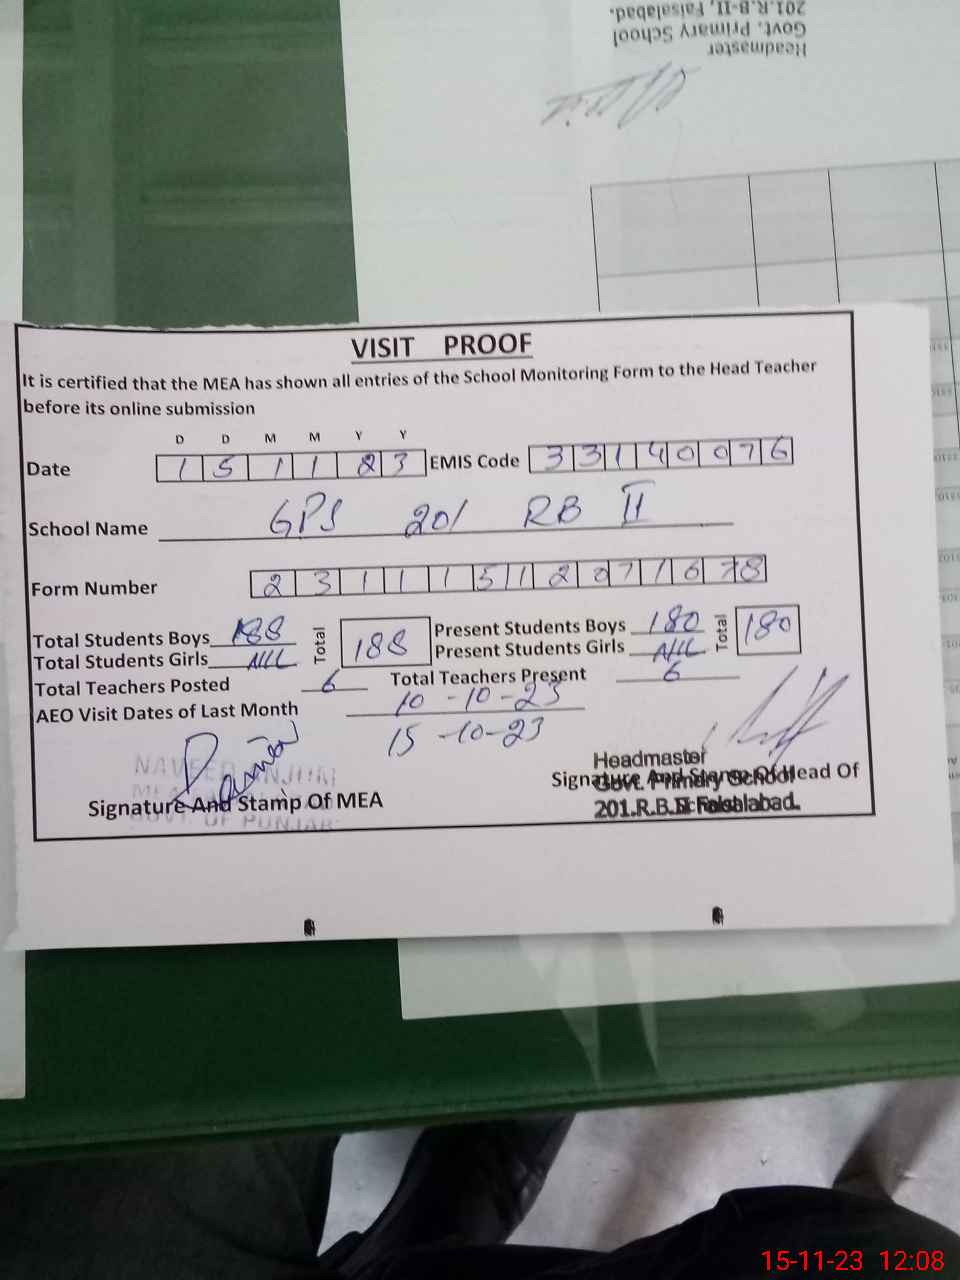 201.R.B-II, Faisalabad.
Govt. Primary School
Headmaster
VISIT PROOF
It is certified that the MEA has shown all entries of the School Monitoring Form to the Head Teacher
before its online submission
D D M M Y Y
Date 1 5 1 1 2 3 EMIS Code 3 3 1 4 0 0 7 6
School Name GPS 201 RB II
Form Number 2 3 1 1 1 5 1 2 0 7 1 6 7 8
Total Students Boys 188 Total 188 Present Students Boys 180 Total 180
Total Students Girls NIL Present Students Girls NIL
Total Teachers Posted 6 Total Teachers Present 6
AEO Visit Dates of Last Month 10-10-23
15-10-23
NAVEED ANJUM
Headmaster
Signature And Stamp Of Head Of
Govt. Primary School
Signature And Stamp Of MEA
GOVT. OF PUNJAB
201.R.B.II Faisalabad.
15-11-23 12:08